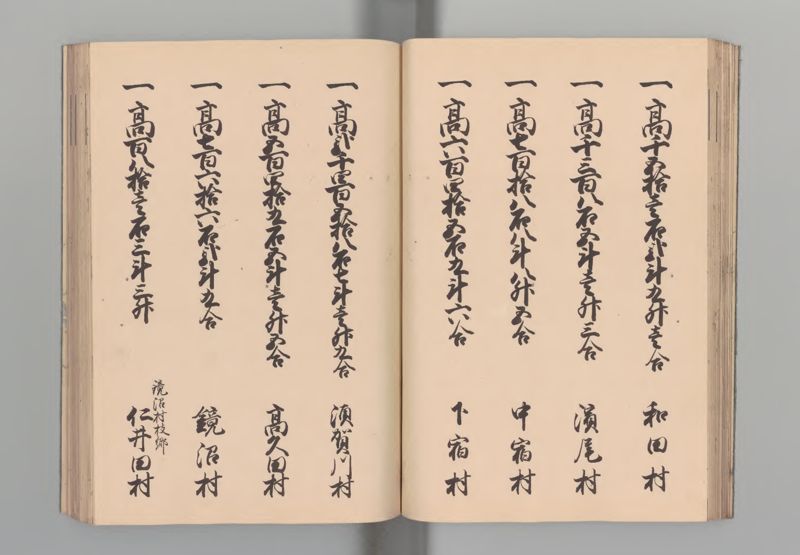 一高千五拾壱石弐斗九升壱合 和田村
一高千三百八石五斗壱升三合 濱尾村
一高七百拾八石八斗八升五合 中宿村
一高六百四拾五石五斗六合 下宿村
一高弐千四百五拾八石七斗壱升九合 須賀川村
一高五百四拾五石五斗壱升五合 高久田村
一高七百六拾六石弐斗九合 鏡沼村
鏡沼村枝郷
一高百八拾壱石三斗三升 仁井田村